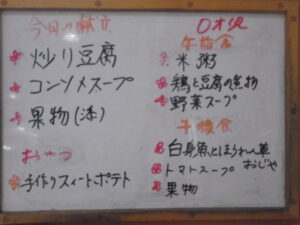 今日の献立
炒り豆腐
コンソメスープ
果物(添)
おやつ
手作りスィートポテト
0才児
午前食
米粥
鶏と豆腐の煮物
野菜スープ
午後食
白身魚とほうれん草
おじや
トマトスープ
果物